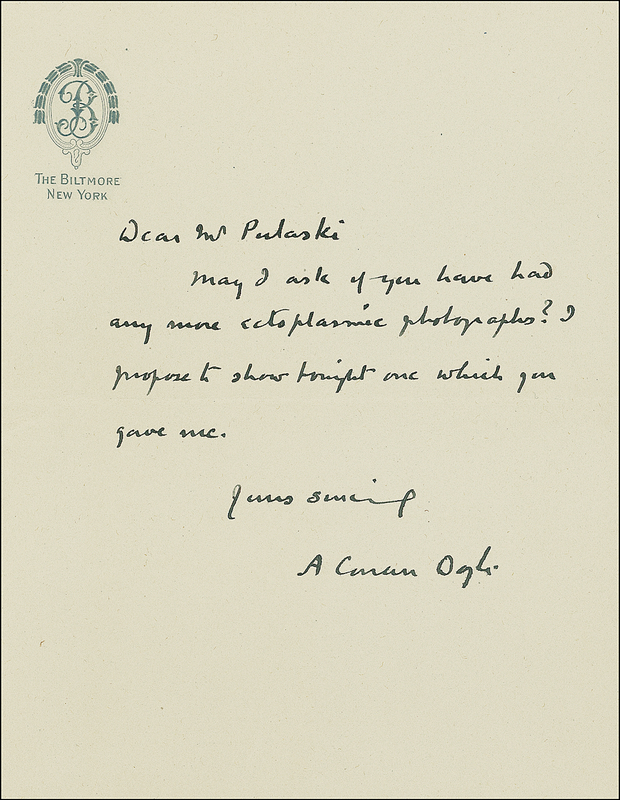 B
THE BILTMORE
NEW YORK
Dear Mr Pulaski
May I ask if you have had
any more ectoplasmic photographs? I
propose to show tonight one which you
gave me.
Yours sincerely
A Conan Doyle